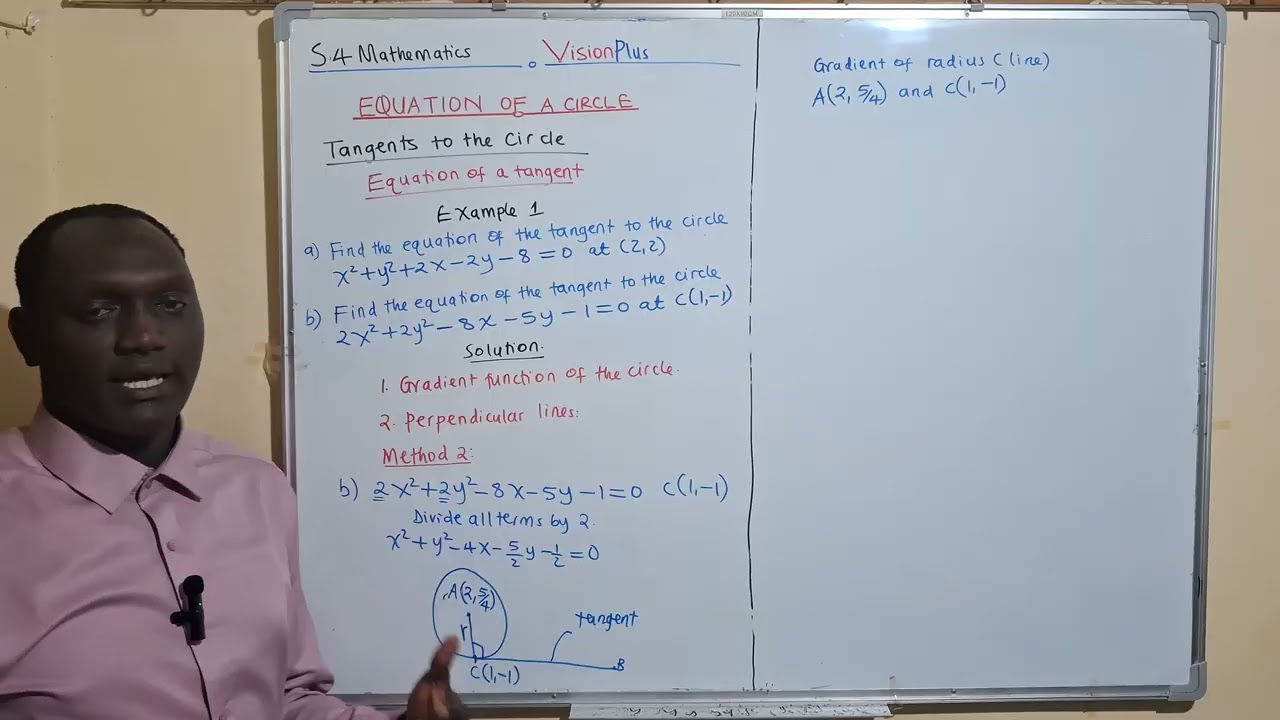 120X90CM
S.4 Mathematics
VisionPlus
EQUATION OF A CIRCLE
Tangents to the Circle
Equation of a tangent
Example 1
a) Find the equation of the tangent to the circle
x²+y²+2x-2y-8=0 at (2,2)
b) Find the equation of the tangent to the circle
2x²+2y²-8x-5y-1=0 at C(1,-1)
Solution.
1. Gradient function of the circle.
2. Perpendicular lines:
Method 2:
b) 2x²+2y²-8x-5y-1=0 C(1,-1)
Divide all terms by 2.
x²+y²-4x-5/2y-1/2=0
A(2,5/4)
r
tangent
B
C(1,-1)
Gradient of radius (line)
A(2,5/4) and C(1,-1)